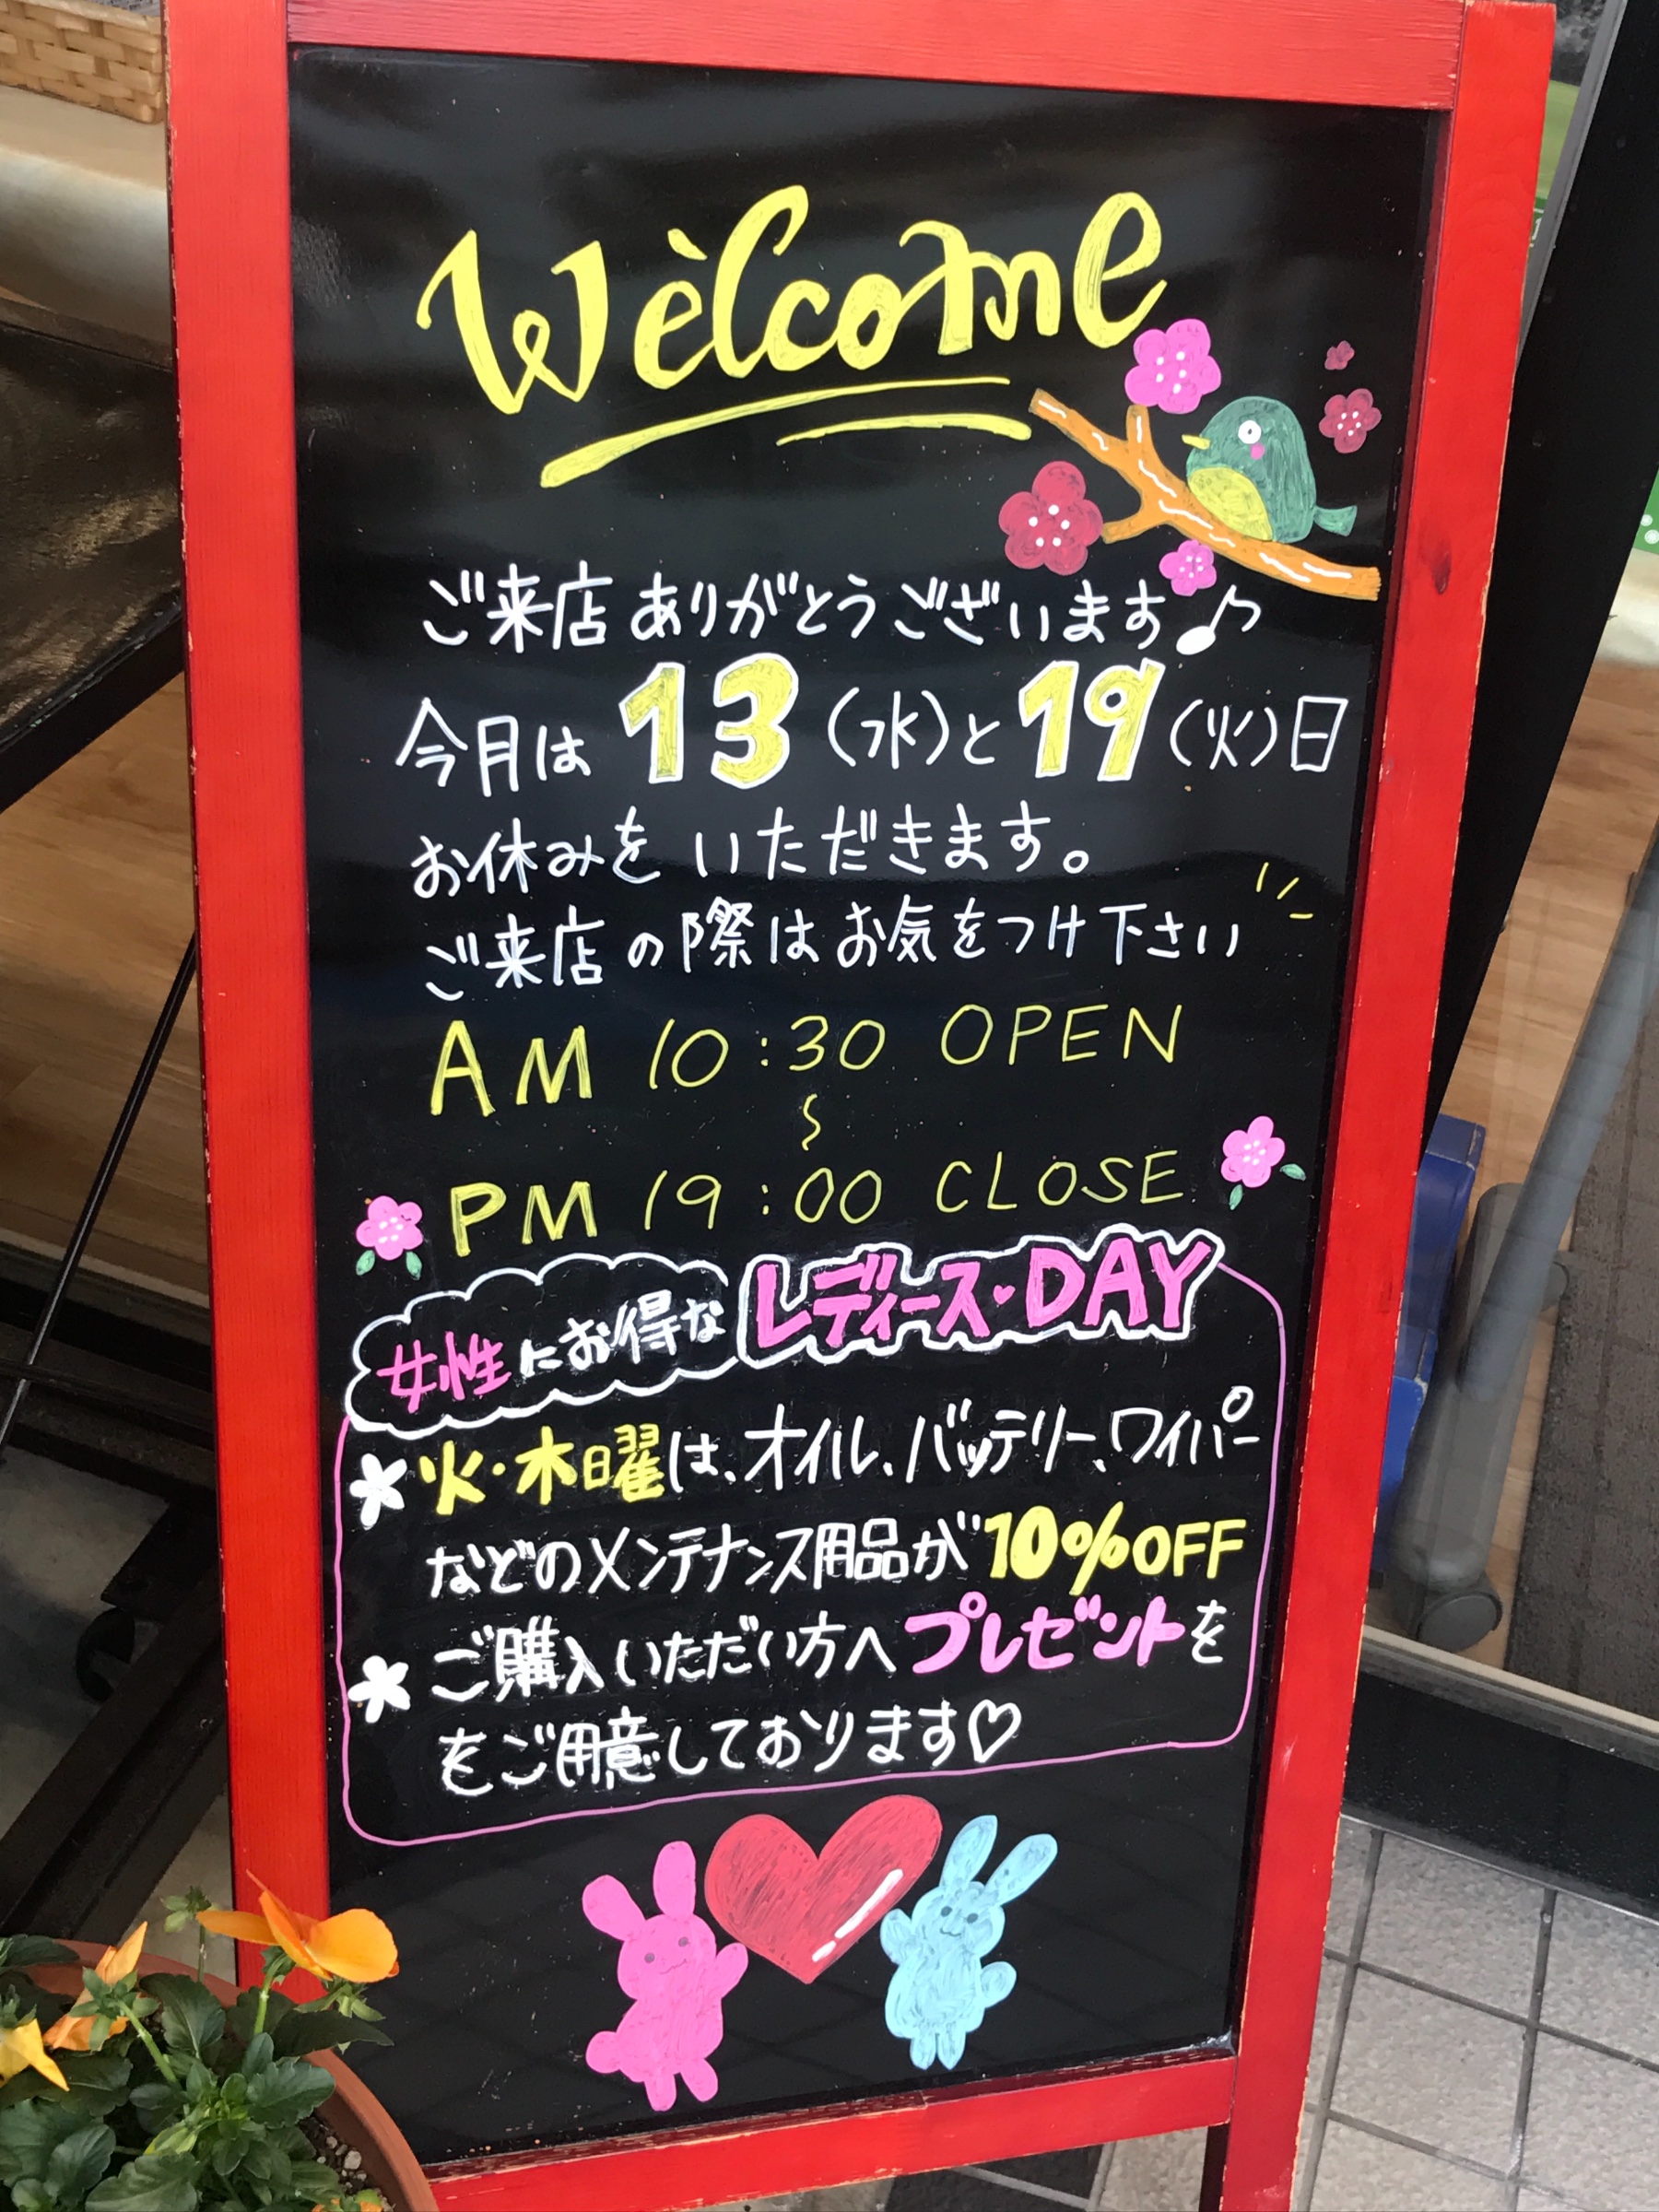 Welcome
ご来店ありがとうございます♪
今月は13(水)と19(火)日
お休みをいただきます。
ご来店の際はお気をつけ下さい
AM 10:30 OPEN
〜
PM 19:00 CLOSE
女性にお得なレディース♥DAY
＊火・木曜は、オイル、バッテリー、ワイパー
などのメンテナンス用品が10%OFF
＊ご購入いただい方へプレゼントを
をご用意しております♡